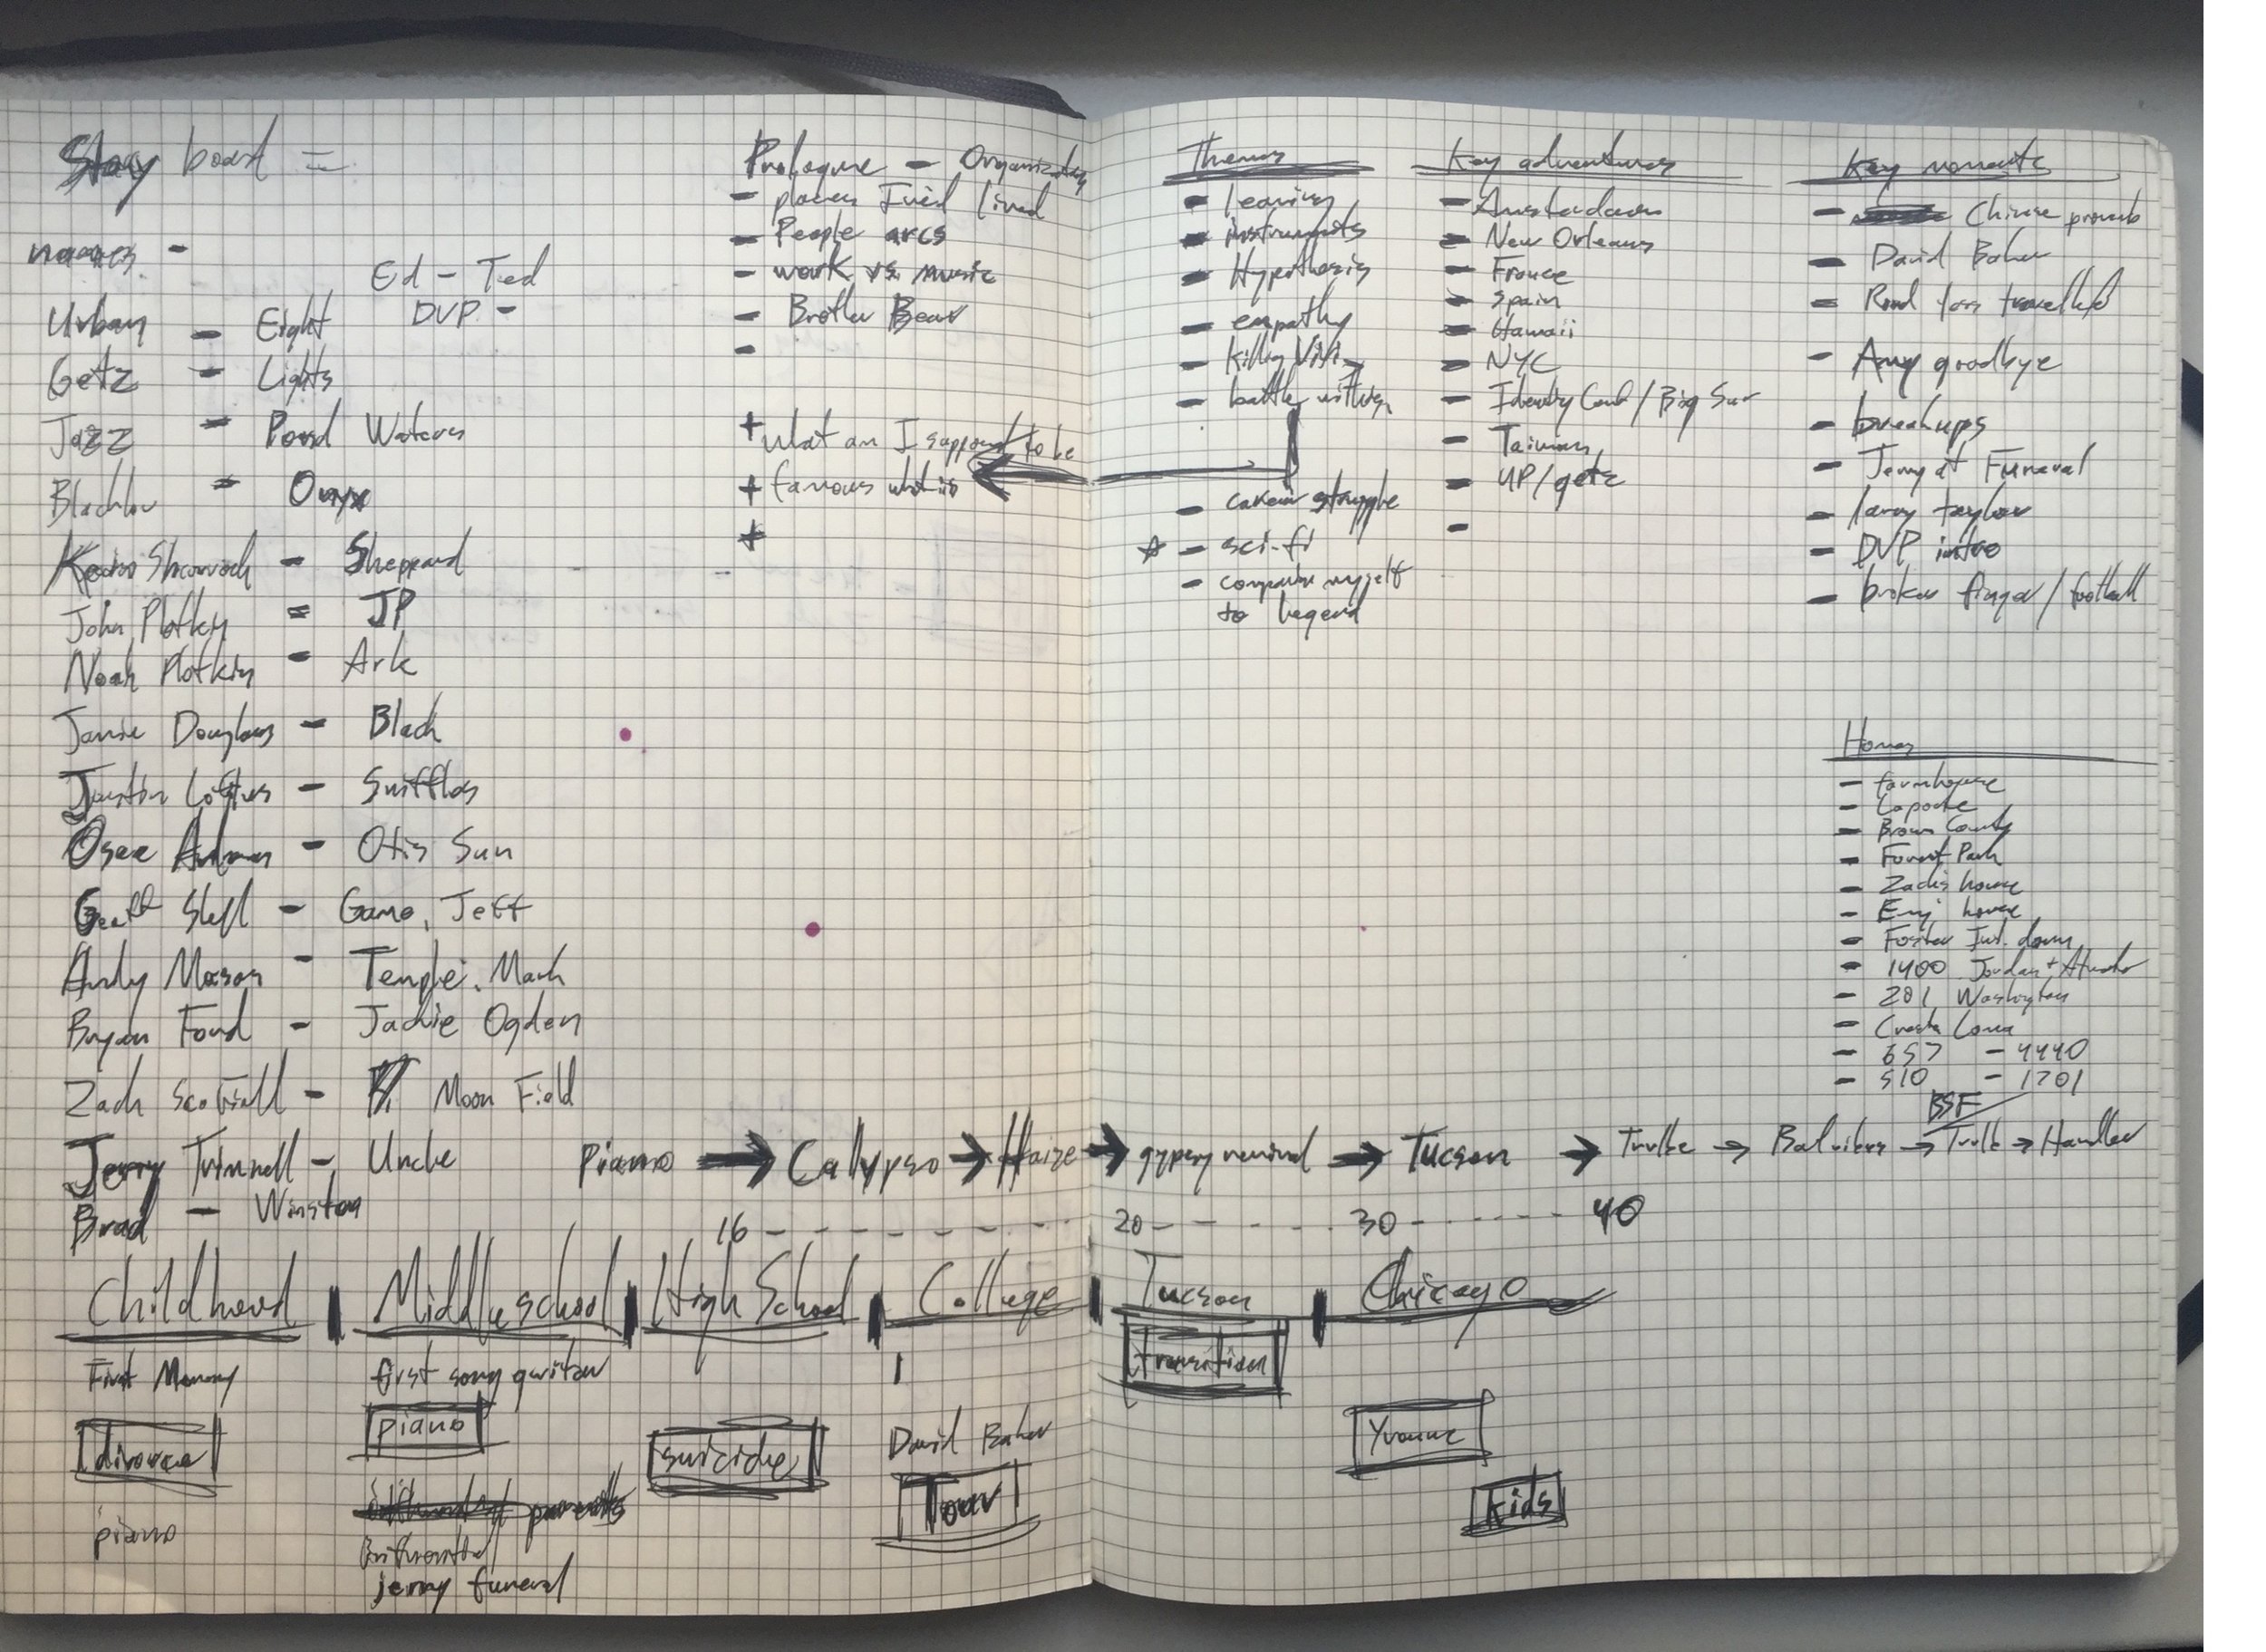 Story board =
names -
Ed - Tied
DVP -
Urban - Eight
Getz - Lights
Jazz - Pond Waters
- Onyx
- Sheppard
John Plotkin = JP
Noah Plotkin - Ark
Jamie Douglass - Black
Justin Loftus - Sniffles
- Otis Sun
- Game, Jeff
Andy Mason - Temple, Mark
Bryan Fond - Jackie Ogden
Zach - Moon Field
Jerry Trimnell - Uncle
Brad - Winston
Prologue - Organization
- places I've lived
- People arcs
- work vs. music
- Brother Bear
-
+ what am I supposed to be
+ famous
+
Themes
- leaving
- instruments
- Hypothesis
- empathy
- killing
- battle within
- career struggle
☆ - sci-fi
- compare myself
to legend
Key adventures
- Amsterdam
- New Orleans
- France
- Spain
- Hawaii
- NYC
- Identity / Big Sur
- Taiwan
- UP/getz
-
Key moments
- Chinese proverb
- David Baker
- Road less travelled
- Amy goodbye
- breakups
- Jerry at Funeral
- larry taylor
- DVP intro
- broken finger / football
Homes
- farmhouse
- Laporte
- Brown County
- Forest Park
- Zach's house
- house
- Foster Int. dorm
- 1400 Jordan + Atwater
- 201 Washington
- Cuesta Loma
- 657 - 4440
- 510 - 1701
BSF
Piano → Callypso → Haize → gypsy revival → Tucson → Trulke → → → Handler
16 - - - - - - 20 - - - - 30 - - - - - 40
Childhood | Middle school | High School | College | Tucson | Chicago
First Memory
divorce
piano
first song guitar
piano
parents
jerry funeral
suicide
David Baker
Tour
transition
Yvonne
kids